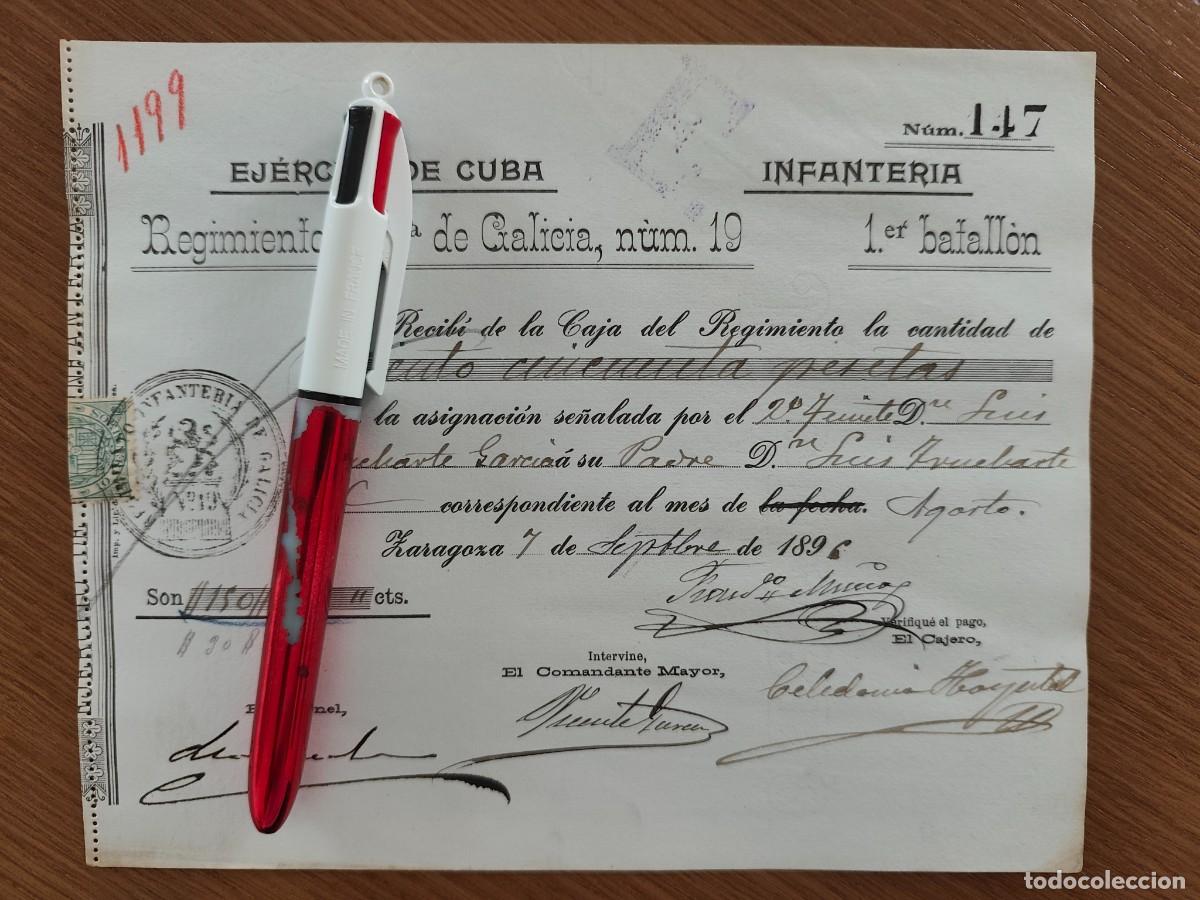 1199
Núm. 147
EJÉRC DE CUBA INFANTERIA
Regimiento a de Galicia, núm. 19 1.er batallòn
Recibí de la Caja del Regimiento la cantidad de
cincuenta pesetas
la asignación señalada por el 2º D. Luis
Garcia á su Padre D. Luis Truebarte
correspondiente al mes de la fecha. Agosto.
Zaragoza 7 de Septbre de 1896
Son 150 cts.
30
Verifiqué el pago,
El Cajero,
Intervine,
El Comandante Mayor,
nel,
Vicente
Celedonio
INFANTERIA DE GALICIA
Nº 19
MADE IN FRANCE
Imp. y Lip.
todocoleccion